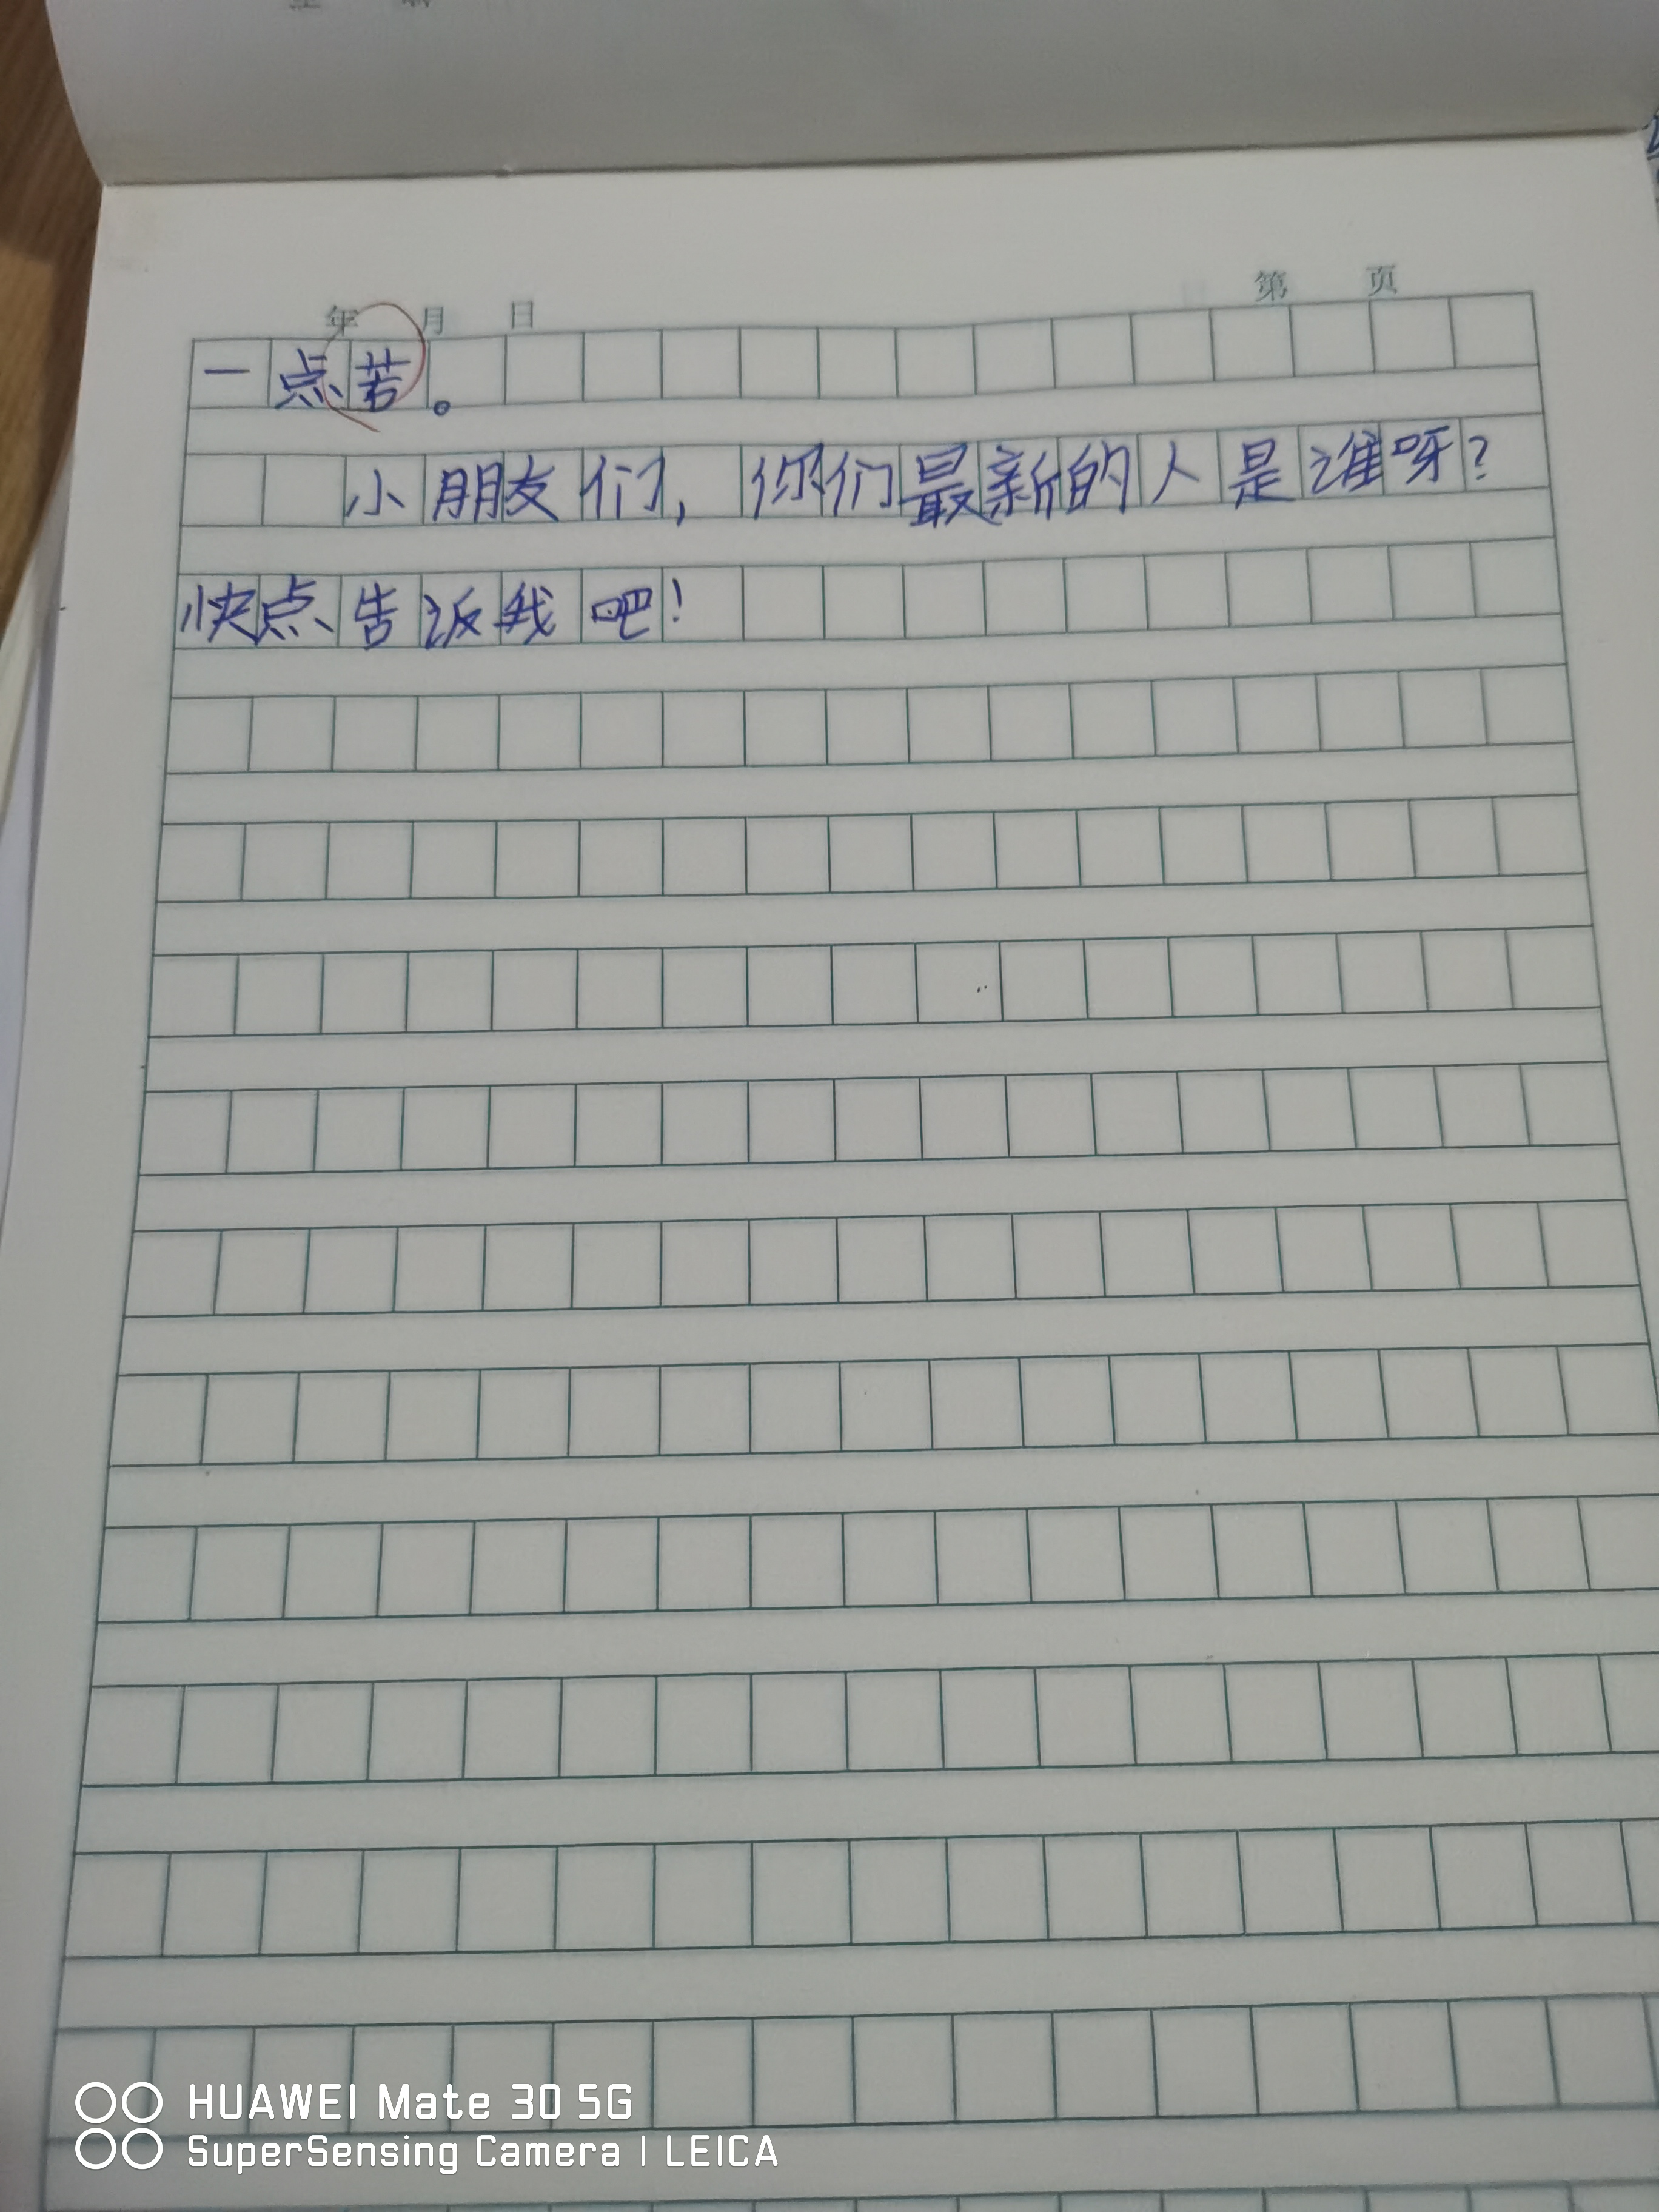 年 月 日 第 页
一点若。
小朋友们,你们最新的人是谁呀?
快点告返我吧!
HUAWEI Mate 30 5G
SuperSensing Camera | LEICA